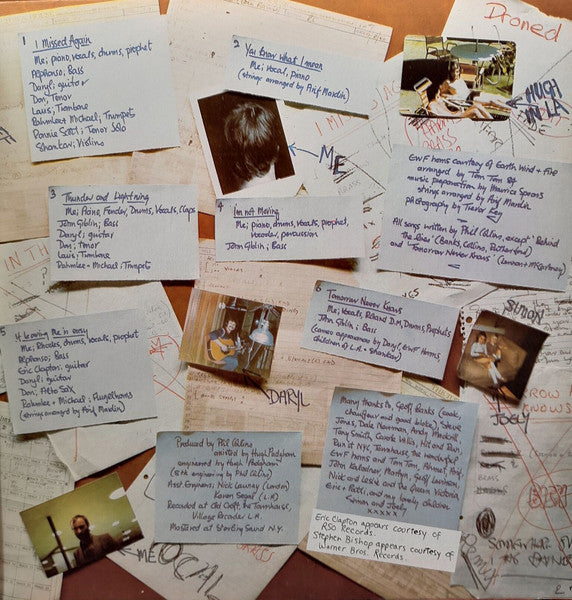 Droned
1 I Missed Again
Me; piano, vocals, drums, prophet
Alphonso; Bass
Daryl; guitar
Don; Tenor
Louis; Trombone
Rahmlee + Michael; Trumpets
Ronnie Scott; Tenor Solo
Shankar; Violins
2 You Know What I mean
Me; vocal, piano
(strings arranged by Arif Mardin)
HUGH
IN LA
I MI
ME
EWF horns courtesy of Earth Wind + Fire
arranged by Tom Tom 84
music preparation by Maurice Spears
strings arranged by Arif Mardin
photography by Trevor Key
All songs written by Phil Collins, except 'Behind
the lines' (Banks, Collins, Rutherford)
and 'Tomorrow Never Knows' (Lennon + McCartney)
3 Thunder and Lightning
Me; Piano, Fender, Drums, Vocals, Claps
John Giblin; Bass
Daryl; guitar
Don; tenor
Louis; Trombone
Rahmlee + Michael; Trumpets
4 I'm not Moving
Me; piano, drums, vocals, prophet,
vocoder, percussion
John Giblin; Bass
IN TH
5 If leaving Me is easy
Me; Rhodes, drums, vocals, prophet
Alphonso; Bass
Eric Clapton; guitar
Daryl; guitar
Don; Alto Sax
Rahmlee + Michael; Flugelhorns
(strings arranged by Arif Mardin)
6 Tomorrow Never Knows
Me; Vocals, Roland D.M, Drums, Prophets
John Giblin; Bass
(cameo appearances by Daryl, EWF Horns,
children of L.A. + Shankar)
SIMON
DARYL
JOELY
ROW
KNOWS
Produced by Phil Collins
assisted by Hugh Padgham
engineered by Hugh Padgham
Asst. Engineers; Nick Launay (London)
Karen Siegel (L.A)
Recorded at Old Croft, the Townhouse,
Village Recorder L.A.
Mastered at Sterling Sound N.Y.
Many thanks to, Geoff Banks (cook,
chauffeur and good bloke), Steve
Jones, Dale Newman, Andy Mackrill,
Tony Smith, Carole Willis, Hit and Run,
Run it NYC, Townhouse, the wonderful
EWF horns and Tom Tom, Ahmet, Arif,
John Kalodner, Martyn, Geoff, Lawson,
Nick and Leslie and the Queen Victoria,
Eric + Patti, and my lovely children
Simon and Joely
xxxxx
Eric Clapton appears courtesy of
RSO Records.
Stephen Bishop appears courtesy of
Warner Bros. Records.
ME
VOCAL